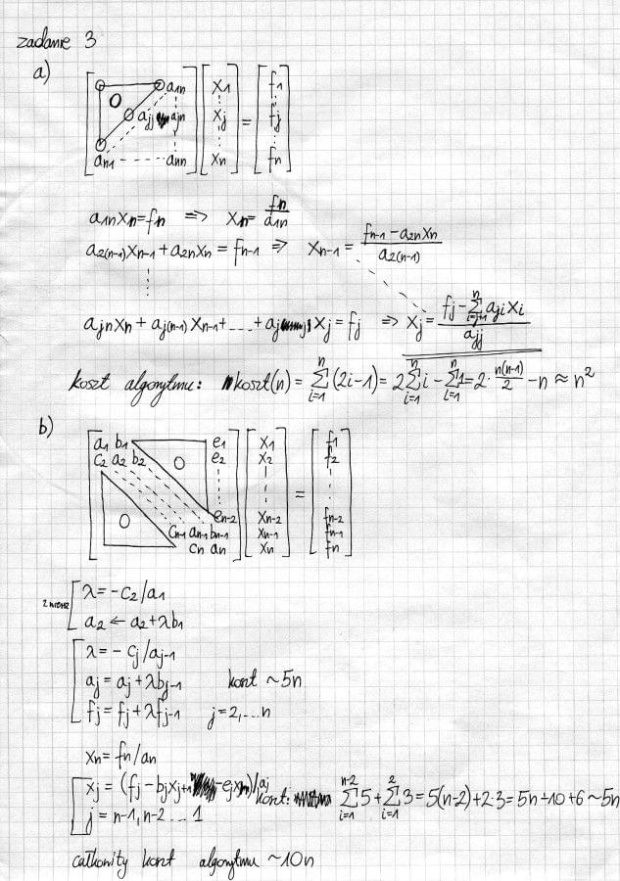 zadanie 3
a)
[ 0 a₁ₙ ; aⱼⱼ aⱼₙ ; aₙ₁ ----- aₙₙ ] [ x₁ ⋮ xⱼ ⋮ xₙ ] = [ f₁ ⋮ fⱼ ⋮ fₙ ]
a₁ₙxₙ = fₙ => xₙ = fₙ/a₁ₙ
a₂₍ₙ₋₁₎xₙ₋₁ + a₂ₙxₙ = fₙ₋₁ => xₙ₋₁ = (fₙ₋₁ - a₂ₙxₙ)/a₂₍ₙ₋₁₎
aⱼₙxₙ + aⱼ₍ₙ₋₁₎xₙ₋₁ + ..... + aⱼⱼxⱼ = fⱼ => xⱼ = (fⱼ - Σ_{i=j+1}^{n} aⱼᵢxᵢ)/aⱼⱼ
koszt algorytmu: koszt(n) = Σ_{i=1}^{n} (2i-1) = 2Σ_{i=1}^{n} i - Σ_{i=1}^{n} 1 = 2· n(n-1)/2 - n ≈ n²
b)
[ a₁ b₁ e₁ ; c₂ a₂ b₂ 0 e₂ ; 0 eₙ₋₂ ; cₙ₋₁ aₙ₋₁ bₙ₋₁ ; cₙ aₙ ] [ x₁ x₂ ⋮ xₙ₋₂ xₙ₋₁ xₙ ] = [ f₁ f₂ ⋮ fₙ₋₂ fₙ₋₁ fₙ ]
λ = -c₂/a₁
a₂ ← a₂+λb₁
λ = - cⱼ/aⱼ₋₁
aⱼ = aⱼ+λbⱼ₋₁ koszt ~5n
fⱼ = fⱼ+λfⱼ₋₁ j=2,....n
xₙ = fₙ/aₙ
xⱼ = (fⱼ - bⱼxⱼ₊₁ - eⱼxₙ)/aⱼ koszt: Σ_{i=1}^{n-2} 5 + Σ_{i=1}^{2} 3 = 5(n-2)+2·3 = 5n-10+6 ~5n
j = n-1, n-2 .... 1
całkowity koszt algorytmu ~10n